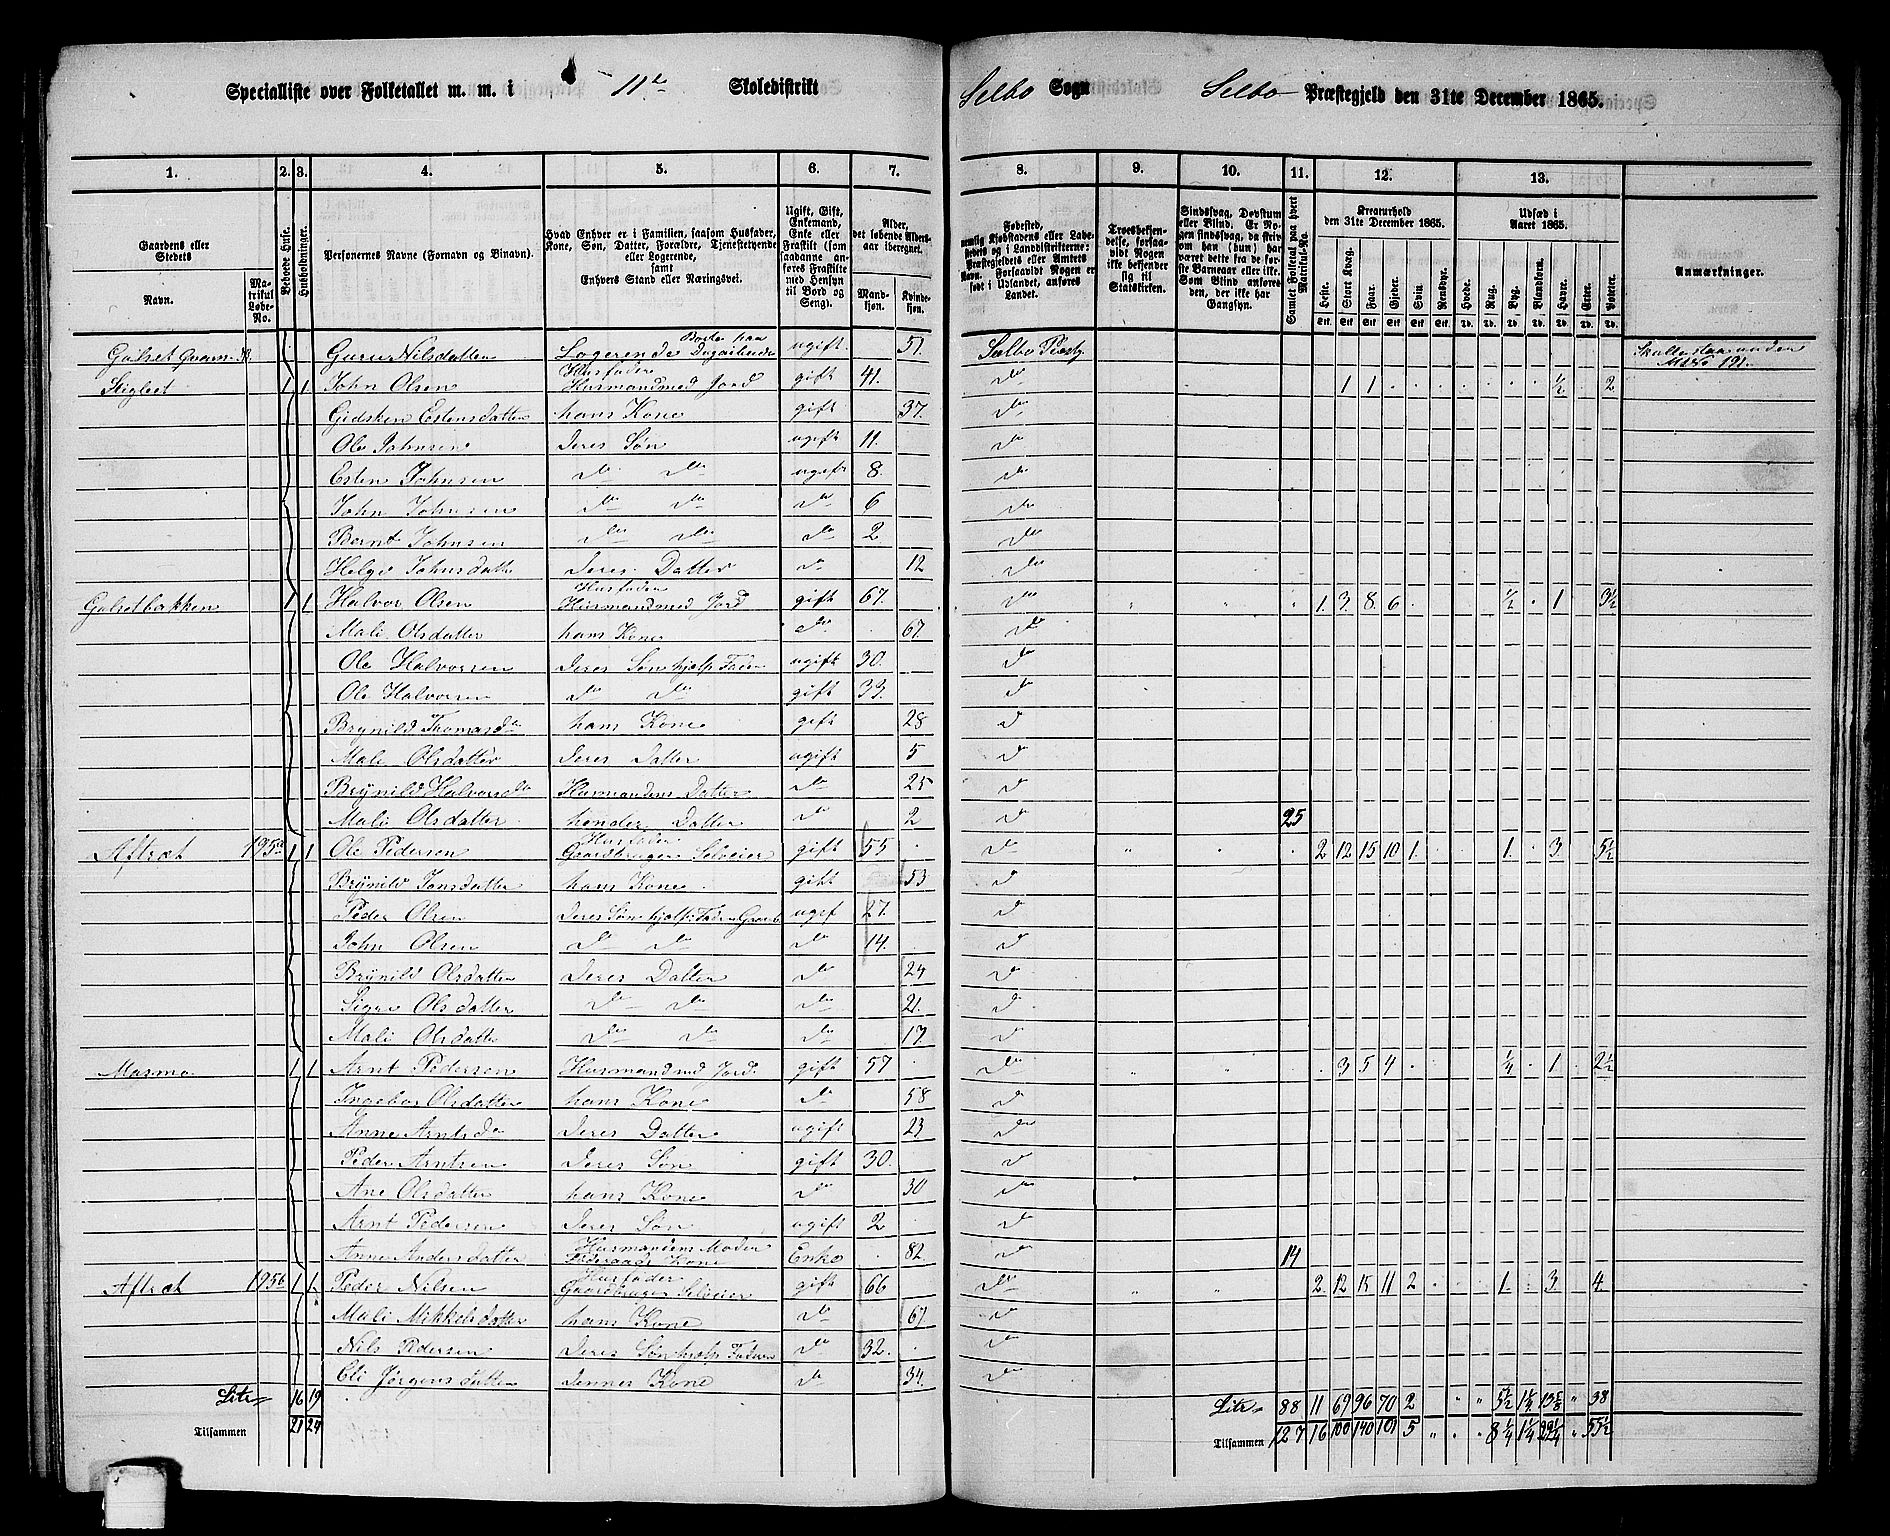 Specialliste over Folketallet m. m. i 11te Skoledistrikt Selbo Sogn Selbo Præstegjeld den 31te December 1865.
1. 2. 3. 4. 5. 6. 7. 8. 9. 10. 11. 12. 13.
Gaardens eller Stedets
Navn.
Matrikul Løbe-No.
Beboede Huse.
Husholdninger.
Personernes Navne (Fornavn og Binavn).
Hvad Enhver er i Familien, saasom Husfader, Kone, Søn, Datter, Forældre, Tjenestetyende eller Logerende, samt Enhvers Stand eller Næringsvei.
Ugift, Gift, Enkemand, Enke eller Fraskilt (som saadanne anføres Fraskilte med Hensyn til Bord og Seng).
Alder, det løbende Aldersaar iberegnet.
Mandkjøn. Kvindekjøn.
Fødested,
Troesbekjendelse, forsaavidt Nogen ikke bekjender sig til Statskirken.
Sindssvag, Døvstum eller Blind.
Samlet Folketal paa hvert Matrikuls-No.
Kreaturhold den 31te December 1865.
Heste. Stort Kvæg. Faar. Gjeder. Sviin. Rensdyr.
Udsæd i Aaret 1865.
Hvede. Rug. Byg. Blandkorn. Havre. Erter. Poteter.
Anmærkninger.
Guru Nilsdatter Logerende ugift 51. Selbo
Stigleet 1 1 John Olsen Husfader Husmand med Jord gift 41. do 1 1 ½ 2
Estensdatter hans Kone gift 37. do
Ole Johnsen deres Søn ugift 11. do
Esten Johnsen do do ugift 8. do
John Johnsen do do do 6 do
Bernt Johnsen do do do 2 do
Johnsdatter deres Datter do 12 do
Galsetbakken 1 1 Halvor Olsen Husfader Husmand med Jord gift 67. do 1. 3. 8. 6 ½ 1 3½
Mali Olsdatter hans Kone do 67. do
Ole Halvorsen deres Søn hjelp Fader ugift 30. do
Ole Halvorsen do do gift 33. do
Brynild Thomasd. hans Kone gift 28 do
Mali Olsdatter deres Datter ugift 5 do
Brynild Halvorsd. Husmandens Datter do 25 do
Mali Olsdatter hendes Datter do 2 do 25
Aftret 195a 1 1 Ole Pedersen Husfader Gaardbruger Selveier gift 55 do 2 12 15 10 1. 1. 3. 5½
Brynild Jonsdatter hans Kone gift 53 do
Peder Olsen deres Søn hjelp Fader ugift 27. do
John Olsen do do do 14. do
Brynild Olsdatter deres Datter do 24 do
Sigri Olsdatter do do do 21. do
Mali Olsdatter do do do 17 do
Mosmo 1 1 Arnt Pedersen Husmand med Jord gift 57 do 3 5 4 ¼ 1 2½
Ingebor Olsdatter hans Kone do 58 do
Anne Arntsd. deres Datter ugift 23 do
Peder Arntsen deres Søn gift 30. do
Ane Olsdatter hans Kone do 30 do
Arnt Pedersen deres Søn ugift 2 do
Anne Andersdatter Husmandens Moder Kone Enke 82. do 14
Aftret 195b 1 1 Peder Nilsen Husfader Gaardbruger Selveier gift 66 do 2 12 15 11 2 1. 3. 4.
Mali Mikkelsdatter hans Kone do 67 do
Nils Pedersen deres Søn hjelp Faderen do 32. do
Eli Jørgensdatter dennes Kone do 34. do
16 19 88 11 69 96 70 2 5½ 1¼ 38
Tilsammen 21 24 Tilsammen 127 16 100 140 101 5 8¼ 1¼ 55½